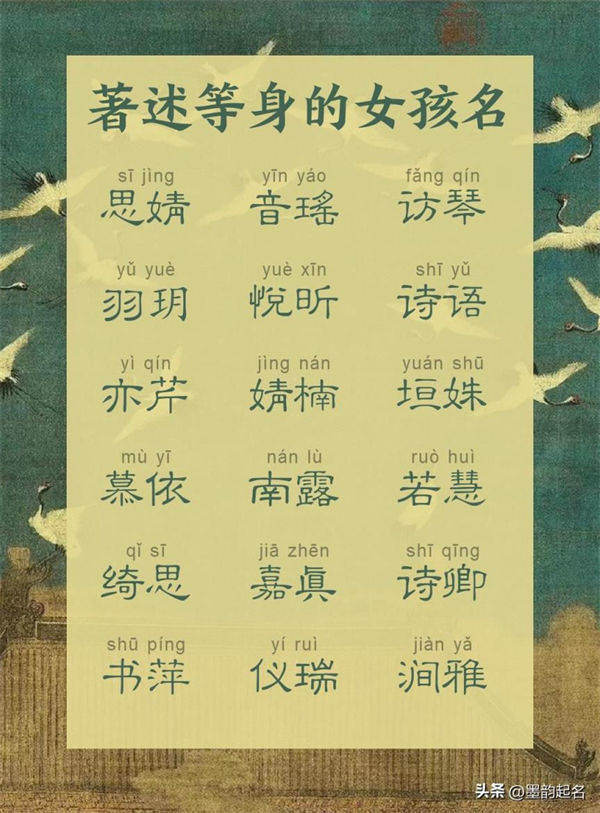 著述等身的女孩名
sī jìng yīn yáo fǎng qín
思婧 音瑤 访琴
yǔ yuè yuè xīn shī yǔ
羽玥 悦昕 诗语
yì qín jìng nán yuán shū
亦芹 婧楠 垣姝
mù yī nán lù ruò huì
慕依 南露 若慧
qǐ sī jiā zhēn shī qīng
绮思 嘉眞 诗卿
shū píng yí ruì jiàn yǎ
书萍 仪瑞 涧雅
头条 @墨韵起名